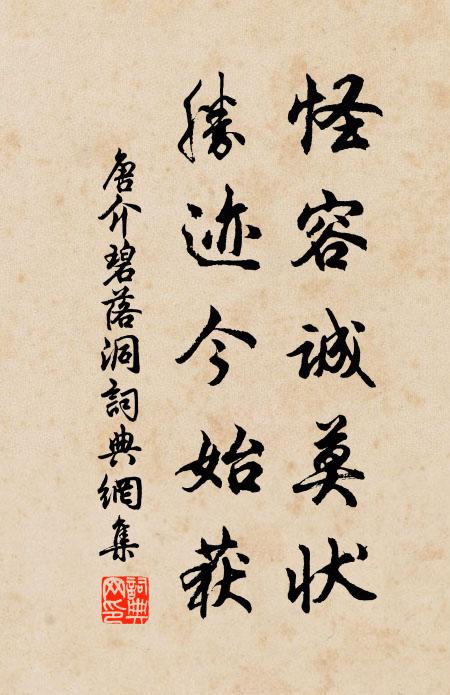 怪容诚莫状
胜迹今始获
唐介碧落洞詞典網集
詞典網印